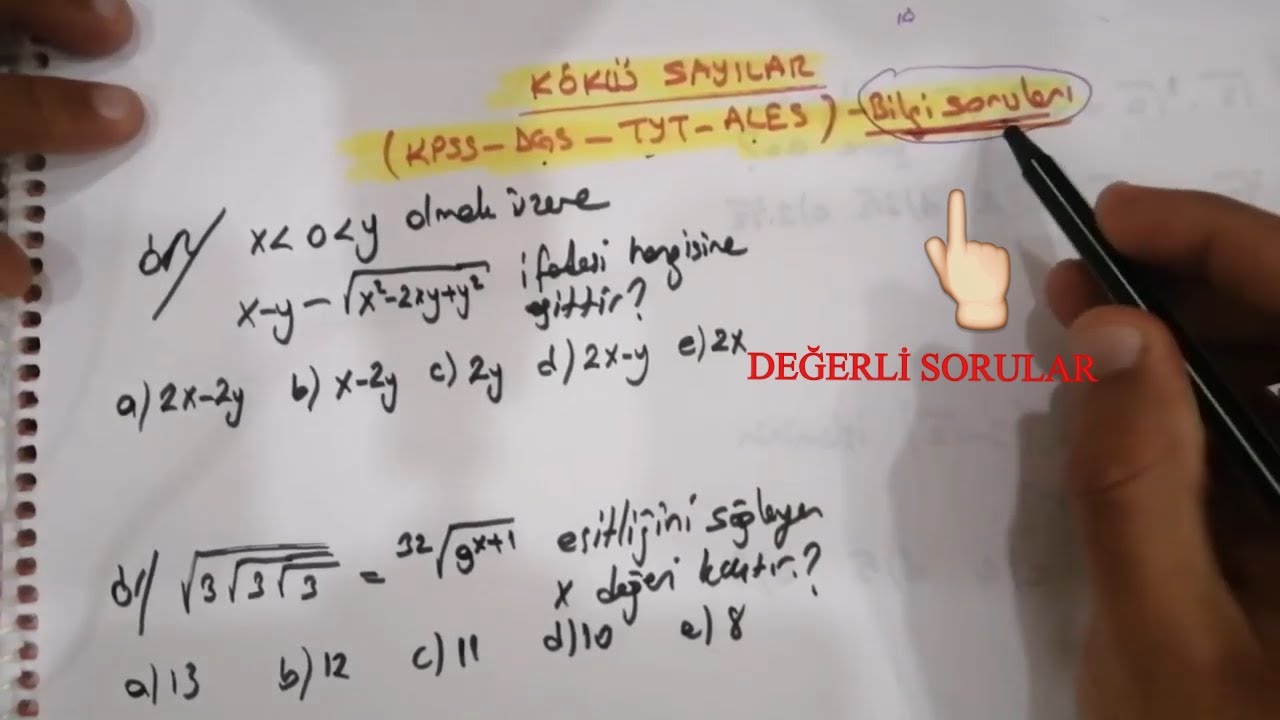 KÖKLÜ SAYILAR
(KPSS-DGS-TYT-ALES)-Bilgi soruları
ör/ x<0<y olmak üzere
x-y-√(x²-2xy+y²) ifadesi hangisine
eşittir?
a)2x-2y b)x-2y c)2y d)2x-y e)2x
DEĞERLİ SORULAR
ör/ √(3√(3√3)) = ³²√(9^(x+1)) eşitliğini sağlayan
x değeri kaçtır?
a)13 b)12 c)11 d)10 e)8